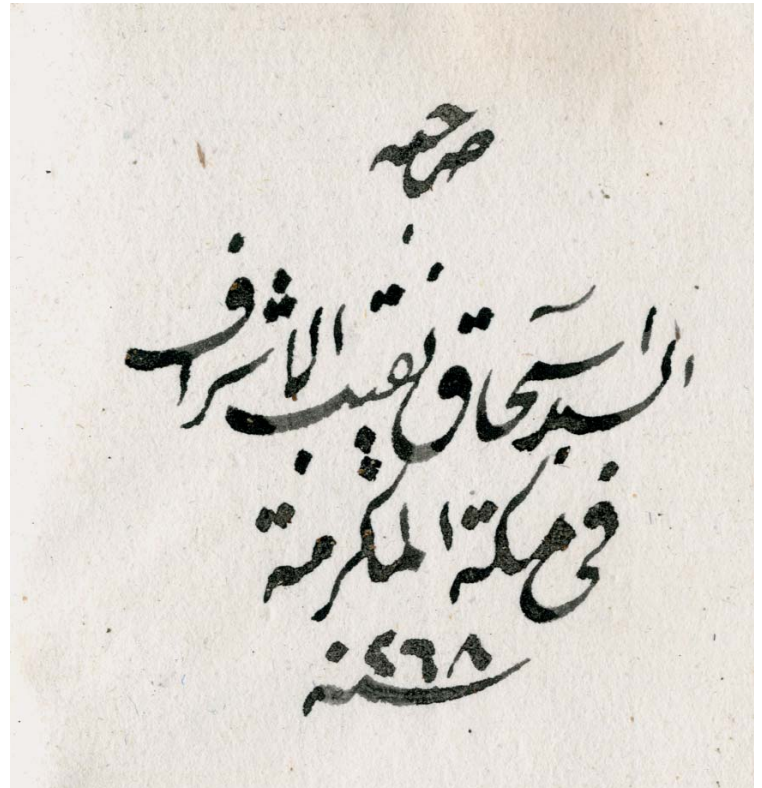 صاحبه
السيد اسحاق نقيب الاشراف
فى مكة المكرمة
سنة ٢٦٨